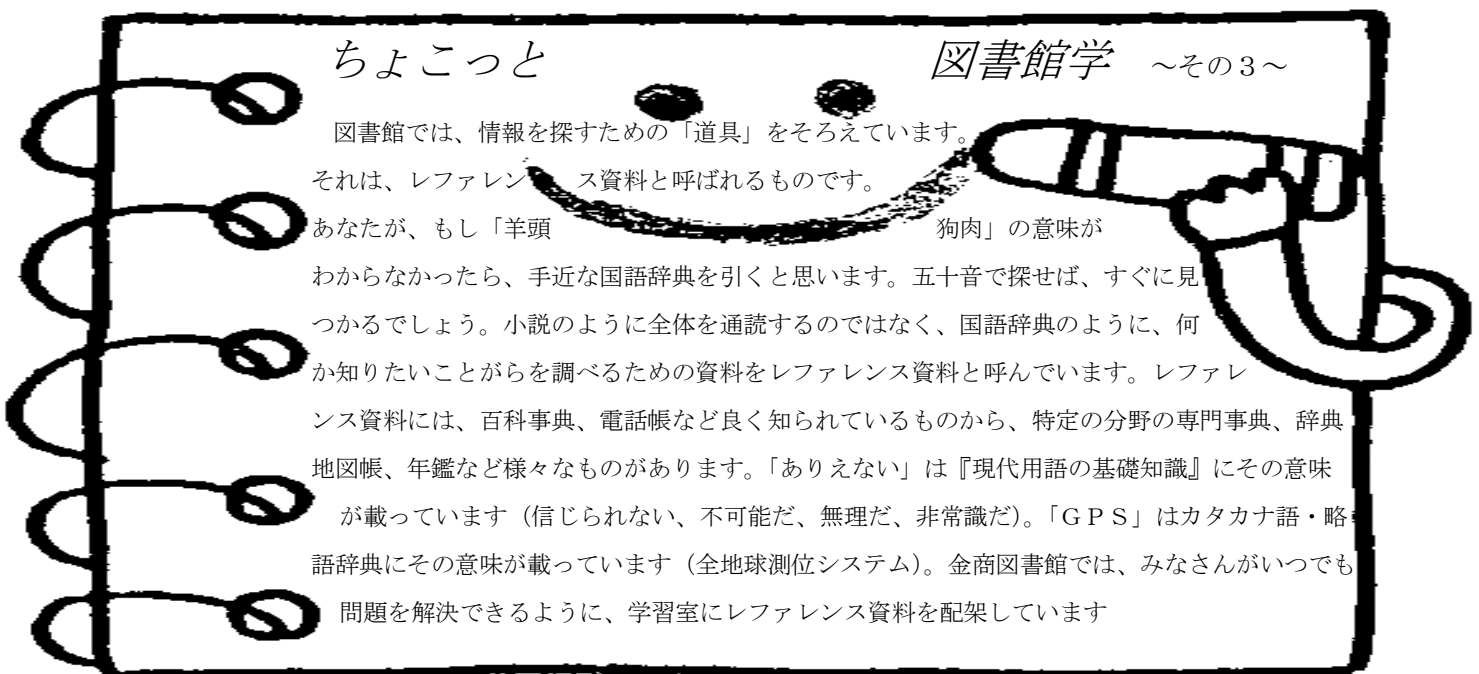 ちょこっと 図書館学 ～その３～
図書館では、情報を探すための「道具」をそろえています。
それは、レファレンス資料と呼ばれるものです。
あなたが、もし「羊頭狗肉」の意味が
わからなかったら、手近な国語辞典を引くと思います。五十音で探せば、すぐに見
つかるでしょう。小説のように全体を通読するのではなく、国語辞典のように、何
か知りたいことがらを調べるための資料をレファレンス資料と呼んでいます。レファレ
ンス資料には、百科事典、電話帳など良く知られているものから、特定の分野の専門事典、辞典
地図帳、年鑑など様々なものがあります。「ありえない」は『現代用語の基礎知識』にその意味
が載っています（信じられない、不可能だ、無理だ、非常識だ）。「ＧＰＳ」はカタカナ語・略
語辞典にその意味が載っています（全地球測位システム）。金商図書館では、みなさんがいつでも
問題を解決できるように、学習室にレファレンス資料を配架しています